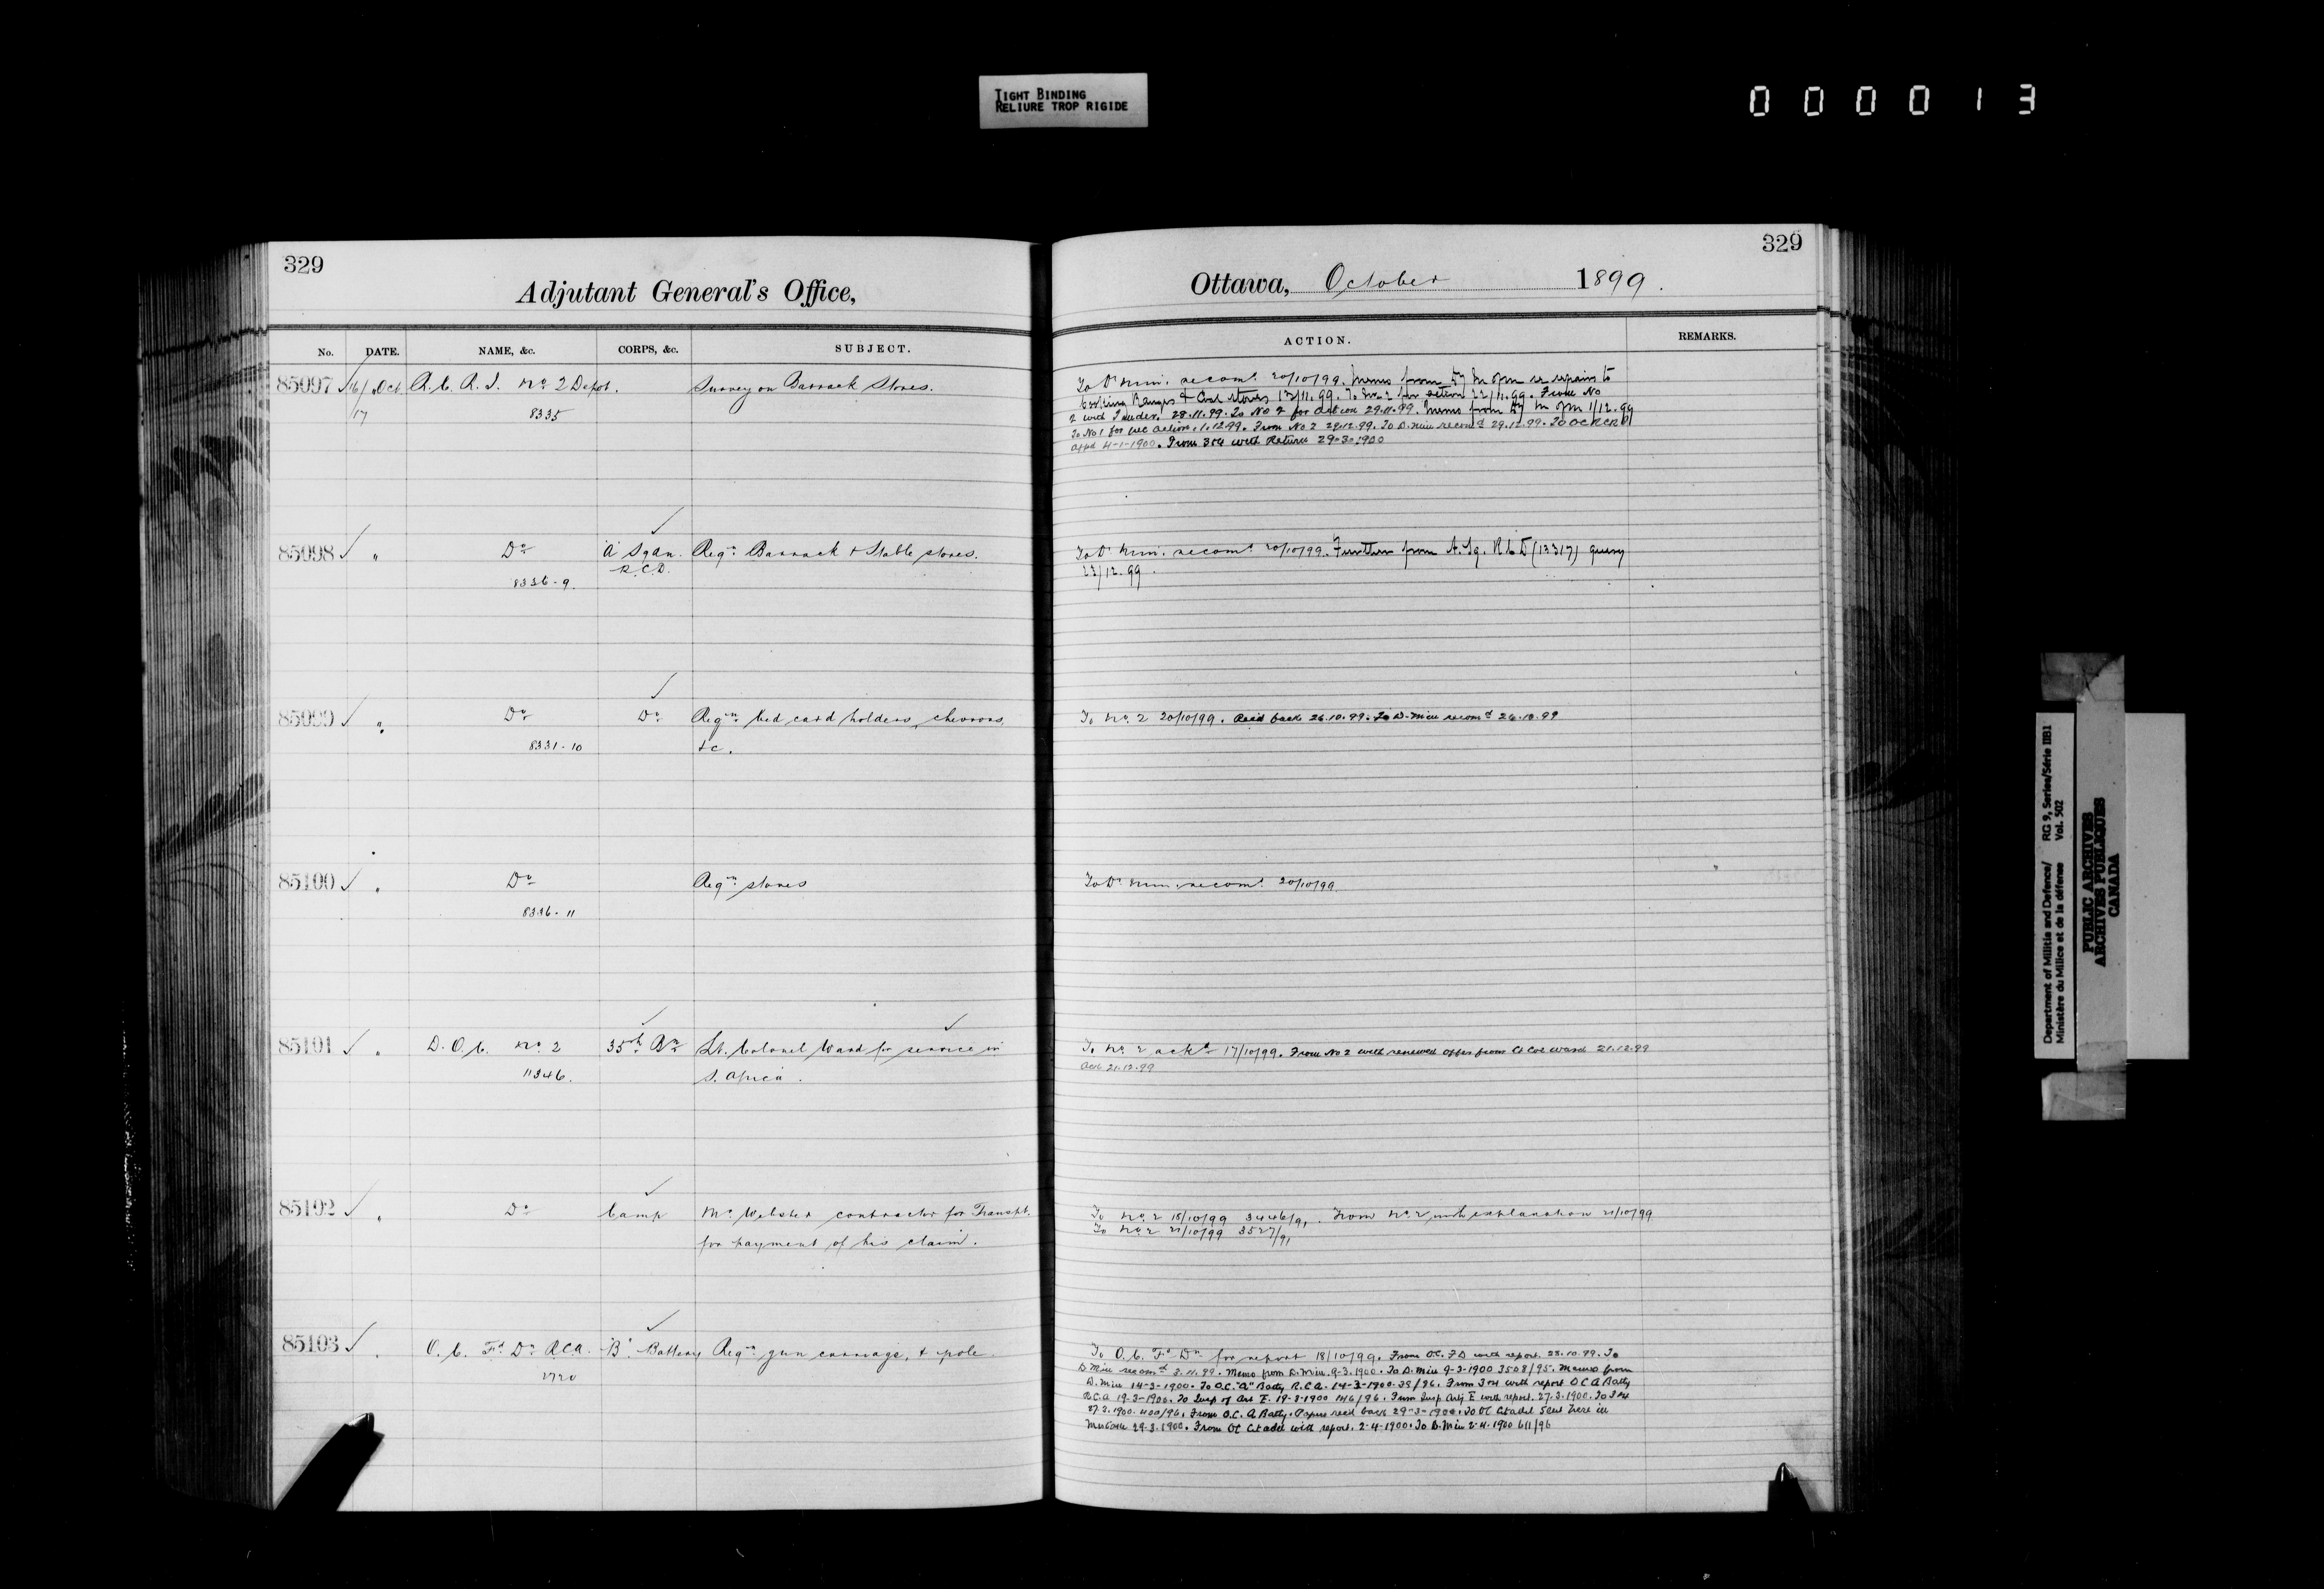 TIGHT BINDING
RELIURE TROP RIGIDE
000013
329
Adjutant General's Office,
No. DATE. NAME, &c. CORPS, &c. SUBJECT.
85097 16/ Oct R. C. R. I. No 2 Depot. Survey on Barrack Stores.
17 8335
85098 " Do "A" Sqdn. Reqn Barrack & Stable stores.
R.C.D.
8336-9.
85099 " Do Do Reqn bed card holders, chevrons,
8331-10 &c.
85100 " Do Reqn stores
8336-11
85101 " D. O. C. No 2 35th Bn Lt. Colonel Ward for service in
11346. S. Africa.
85102 " Do Camp Mr Webster contractor for Transpt.
for payment of his claim.
85103 " O. C. Fd Dn RCA "B" Battery Reqn gun carriage, & pole.
1720
329
Ottawa, October 1899.
ACTION. REMARKS.
To D. Min. recomd 20/10/99. Memo from Dy M of M re repairs to
Cooking Ranges & Coal Stoves 13/11.99. To No 2 for action 22/11.99. From No
2 with Tender. 28.11.99. To No 2 for action 29.11.99. Memo from Dy M of M 1/12.99
To No 1 for nec action. 1.12.99. From No 2 29.12.99. To D. Min recomd 29.12.99. To OC RCRI
appd 4-1-1900. From 304 with Return 29-3-1900
To D. Min. recomd 20/10/99. Further from A. Sq. R C D (13317) query
23/12.99.
To No 2 20/10/99. Recd back 26.10.99. To D. Min recomd 26.10.99
To D. Min. recomd 20/10/99
To No 2 ackd 17/10/99. From No 2 with renewed offer from Lt Col Ward 21.12.99
Ack 21.12.99
To No 2 18/10/99 3446/91. From No 2 with explanation 21/10/99
To No 2 21/10/99 3527/91
To O. C. Fd Dn for report 18/10/99. From OC. F D with report. 28.10.99. To
D Min recomd 3.11.99. Memo from D. Min. 9-3-1900. To D. Min 9-3-1900 3508/95. Memo from
D. Min 14-3-1900. To O.C. "A" Batty R.C.A. 14-3-1900. 38/96. From 304 with report O C A Batty
R.C.A 19-3-1900. To Insp of Art E. 19-3-1900 146/96. From Insp Arty E with report. 27.3.1900. To 304
27.3.1900. 400/96. From O.C. A Batty. Papers recd back 29-3-1900. To OC Citadel sent here in
Mistake 29.3.1900. From OC Citadel with report. 2-4-1900. To D. Min 2-4-1900 611/96
Department of Militia and Defence/ RG 9, Series/Série IIB1
Ministère du Milice et de la défense Vol. 502
PUBLIC ARCHIVES
ARCHIVES PUBLIQUES
CANADA